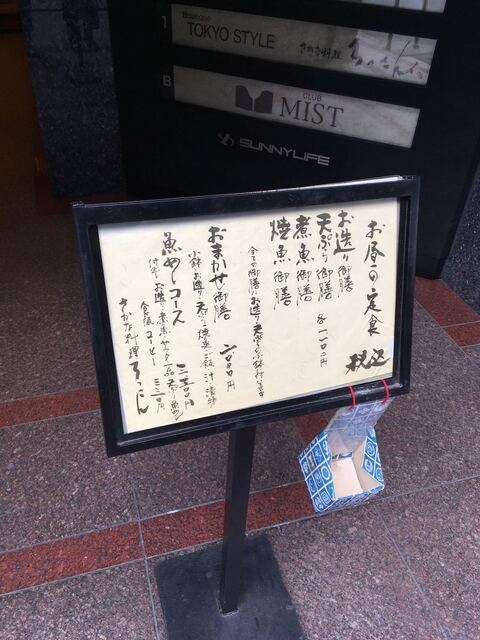 1
Boutique
TOKYO STYLE
さかな料理
B
CLUB
MIST
SUNNYLIFE
お昼の定食
税込
お造り御膳
天ぷら御膳 各一一〇〇円
煮魚御膳
焼魚御膳
全ての御膳にお造り、天ぷらの小鉢付きます
おまかせ御膳 二〇〇〇円
小鉢 お造り 天ぷら 焼魚 ご飯 汁 漬物
魚めしコース 三三〇〇円
付出 お造り 煮魚 サラダ 一品 天ぷら 魚めし
食後 コーヒー 三三〇円
さかな料理